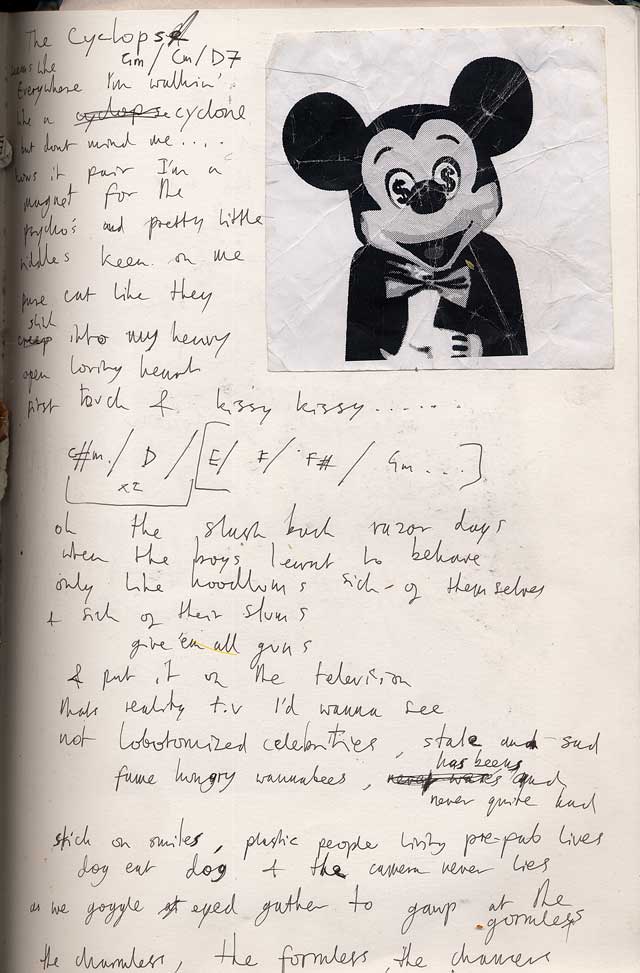 The Cyclops
Gm / Cm / D7
seems like
Everywhere I'm walkin'
like a cyclopse cyclone
but dont mind me....
hows it pair I'm a
magnet for the
psycho's and pretty little
riddles keen on me
pure cut like they
stick
creep into my heavy
open loving heart
first touch & kissy kissy.......
C#m. / D / [E / F / F# / Gm ...]
x2
oh the slash back razor days
when the boys learnt to behave
only like hoodlums sick of themselves
+ sick of their slums
give 'em all guns
& put it on the television
thats reality t.v I'd wanna see
not lobotomized celebrities, stale and sad
fame hungry wannabees, never was has beens and
never quite had
stick on smiles, plastic people living pre-fab lives
dog eat dog & the camera never lies
as we goggle eyed gather to gawp at the
gormless
the charmless, the formless, the chancers
$ $